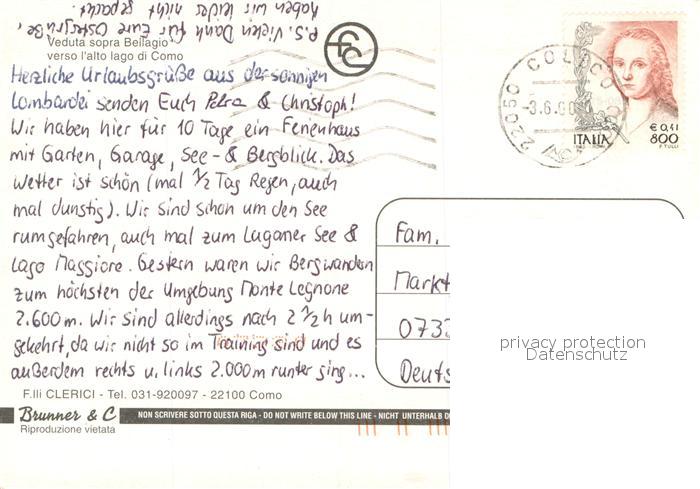 P.S. Vielen Dank für Eure Ostergrüße,
haben wir leider nicht gepackt.
Veduta sopra Bellagio
verso l'alto lago di Como
Herzliche Urlaubsgrüße aus der sonnigen
Lombardei senden Euch Petra & Christoph!
Wir haben hier für 10 Tage ein Ferienhaus
mit Garten, Garage, See- & Bergblick. Das
Wetter ist schön (mal 1/2 Tag Regen, auch
mal dunstig). Wir sind schon um den See
rumgefahren, auch mal zum Luganer See &
Lago Maggiore. Gestern waren wir Bergwandern
zum höchsten der Umgebung Monte Legnone
2.600m. Wir sind allerdings nach 2 1/2 h um-
gekehrt, da wir nicht so im Training sind und es
außerdem rechts u. links 2.000m runter ging...
F.lli CLERICI - Tel. 031-920097 - 22100 Como
Brunner & C
NON SCRIVERE SOTTO QUESTA RIGA - DO NOT WRITE BELOW THIS LINE - NICHT UNTERHALB
Riproduzione vietata
22050 COLICO
-3.6.00
€ 0,41
ITALIA 800
F. TULLI
Fam.
Markt
073
Deuts
privacy protection
Datenschutz